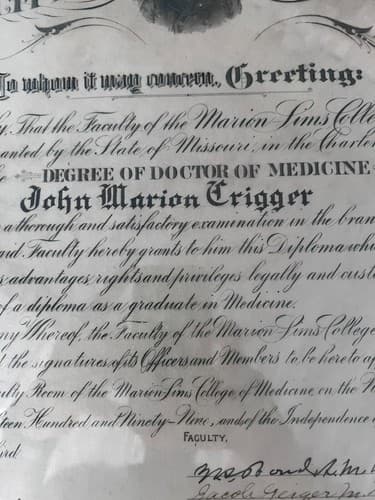 To whom it may concern, Greeting:
That the Faculty of the Marion Sims Colle
anted by the State of Missouri, in the Charter
DEGREE OF DOCTOR OF MEDICINE
John Marion Trigger
a thorough and satisfactory examination in the bran
aid Faculty hereby grants to him this Diploma whi
advantages, rights and privileges legally and cust
of a diploma as a graduate in Medicine.
ny Whereof, the Faculty of the Marion Sims College
the signatures of its Officers and Members to be hereto a
ulty Room of the Marion Sims College of Medicine on the
teen Hundred and Ninety-Nine, and of the Independence
ird
FACULTY,
Jacob Geiger M.